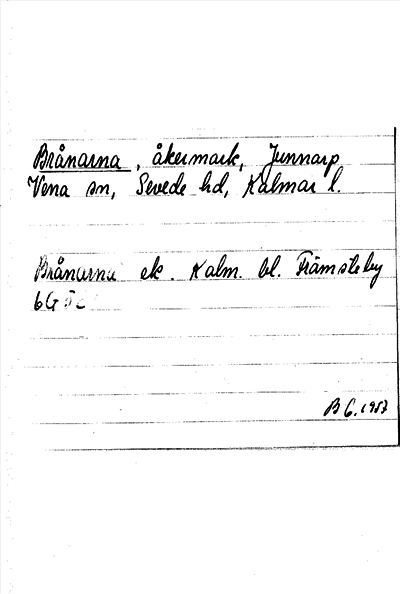 Brånarna, åkermark, Junnarp
Vena sn, Sevede hd, Kalmar l.
Brånarna ek. Kalm. bl. Främsteby
6G
B G. 1957